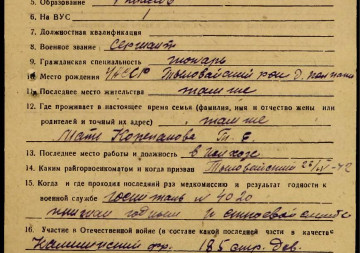 5. Образование 4 класса
6. На ВУС
7. Должностная квалификация
8. Военное звание Сержант
9. Гражданская специальность токарь
10. Место рождения УАССР Понинский р-н д.
11. Последнее место жительства там же
12. Где проживает в настоящее время семья (фамилия, имя и отчество жены или
родителей и точный их адрес) там же
Мать Корепанова
13. Последнее место работы и должность в колхозе
14. Каким райгорвоенкоматом и когда призван
15. Когда и где проходил последний раз медкомиссию и результат годности к
военной службе госпиталь № 1020
признан годным к строевой службе
16. Участие в Отечественной войне (в составе какой последней части в качестве
Калининский фр. 185 стр. див.